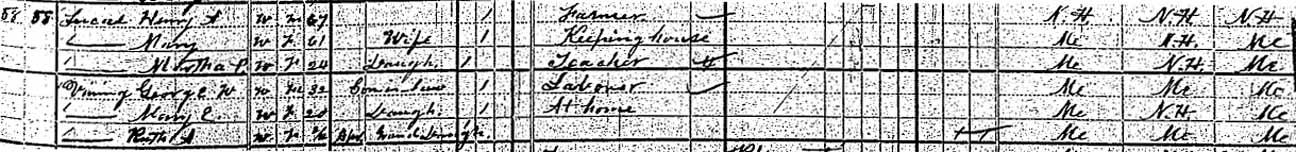 58 58 Henry A W M 67 1 Farmer N.H. N.H. N.H.
—— Mary W F 61 Wife 1 Keeping house Me N.H. Me
—— Martha P. W F 24 Daugh. 1 Teacher Me N.H. Me
Vining George W W M 32 Son in law 1 Laborer Me Me Me
—— Mary E W F 28 Daugh. 1 At home Me N.H. Me
—— Ruth A W F Grand Daugh. Me Me Me